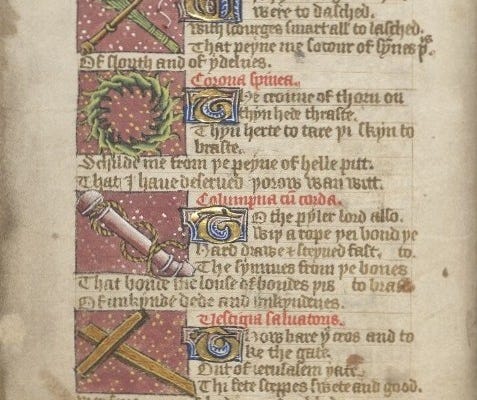 were to dasched.
With scourges smart all to lasched.
That peyne me socour of synes
Of slouth and of ydelnes.
Corona spinea.
The croune of thorn on
thyn hede thraste.
Thyn herte to tare þi skyn to
braste.
Schilde me from þe peyne of helle pitt.
That I haue deserued þorow wan witt.
Columpna cū corda.
To the pyler lord also.
Wiþ a rope þei bond þe
Hard drawe & streyned fast. to.
The synnues from þe bones
That bonde me louse of bondes to brast
Of unkynde dede and unkyndenes.
Vestigia saluatoris.
Thow bare þi cros and to
ke the gate.
Out of ierusalem yate.
Thi fete steppes swete and good.